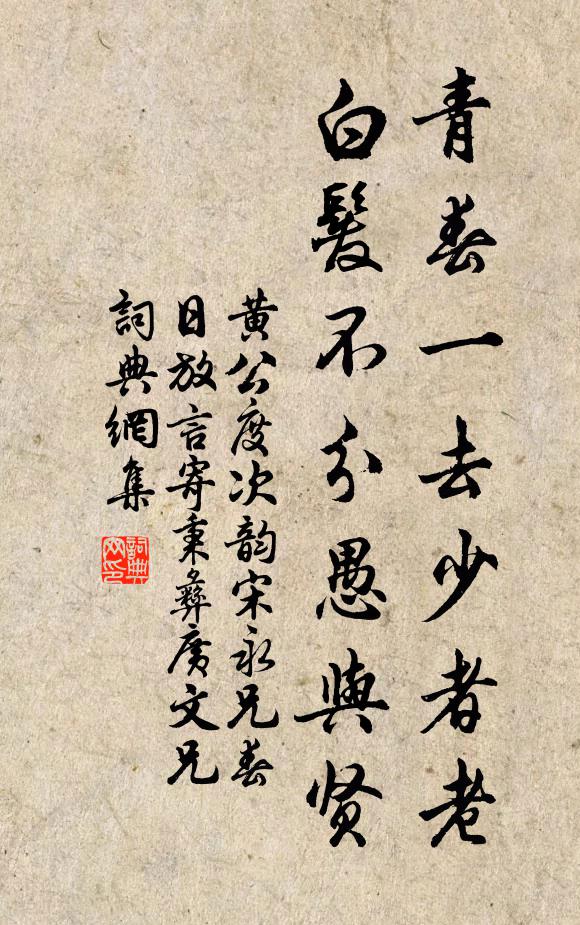 青春一去少者老
白髮不分愚與贤
黄公度次韵宋永兄春
日放言寄秉彝廣文兄
詞典網集
詞典
网印